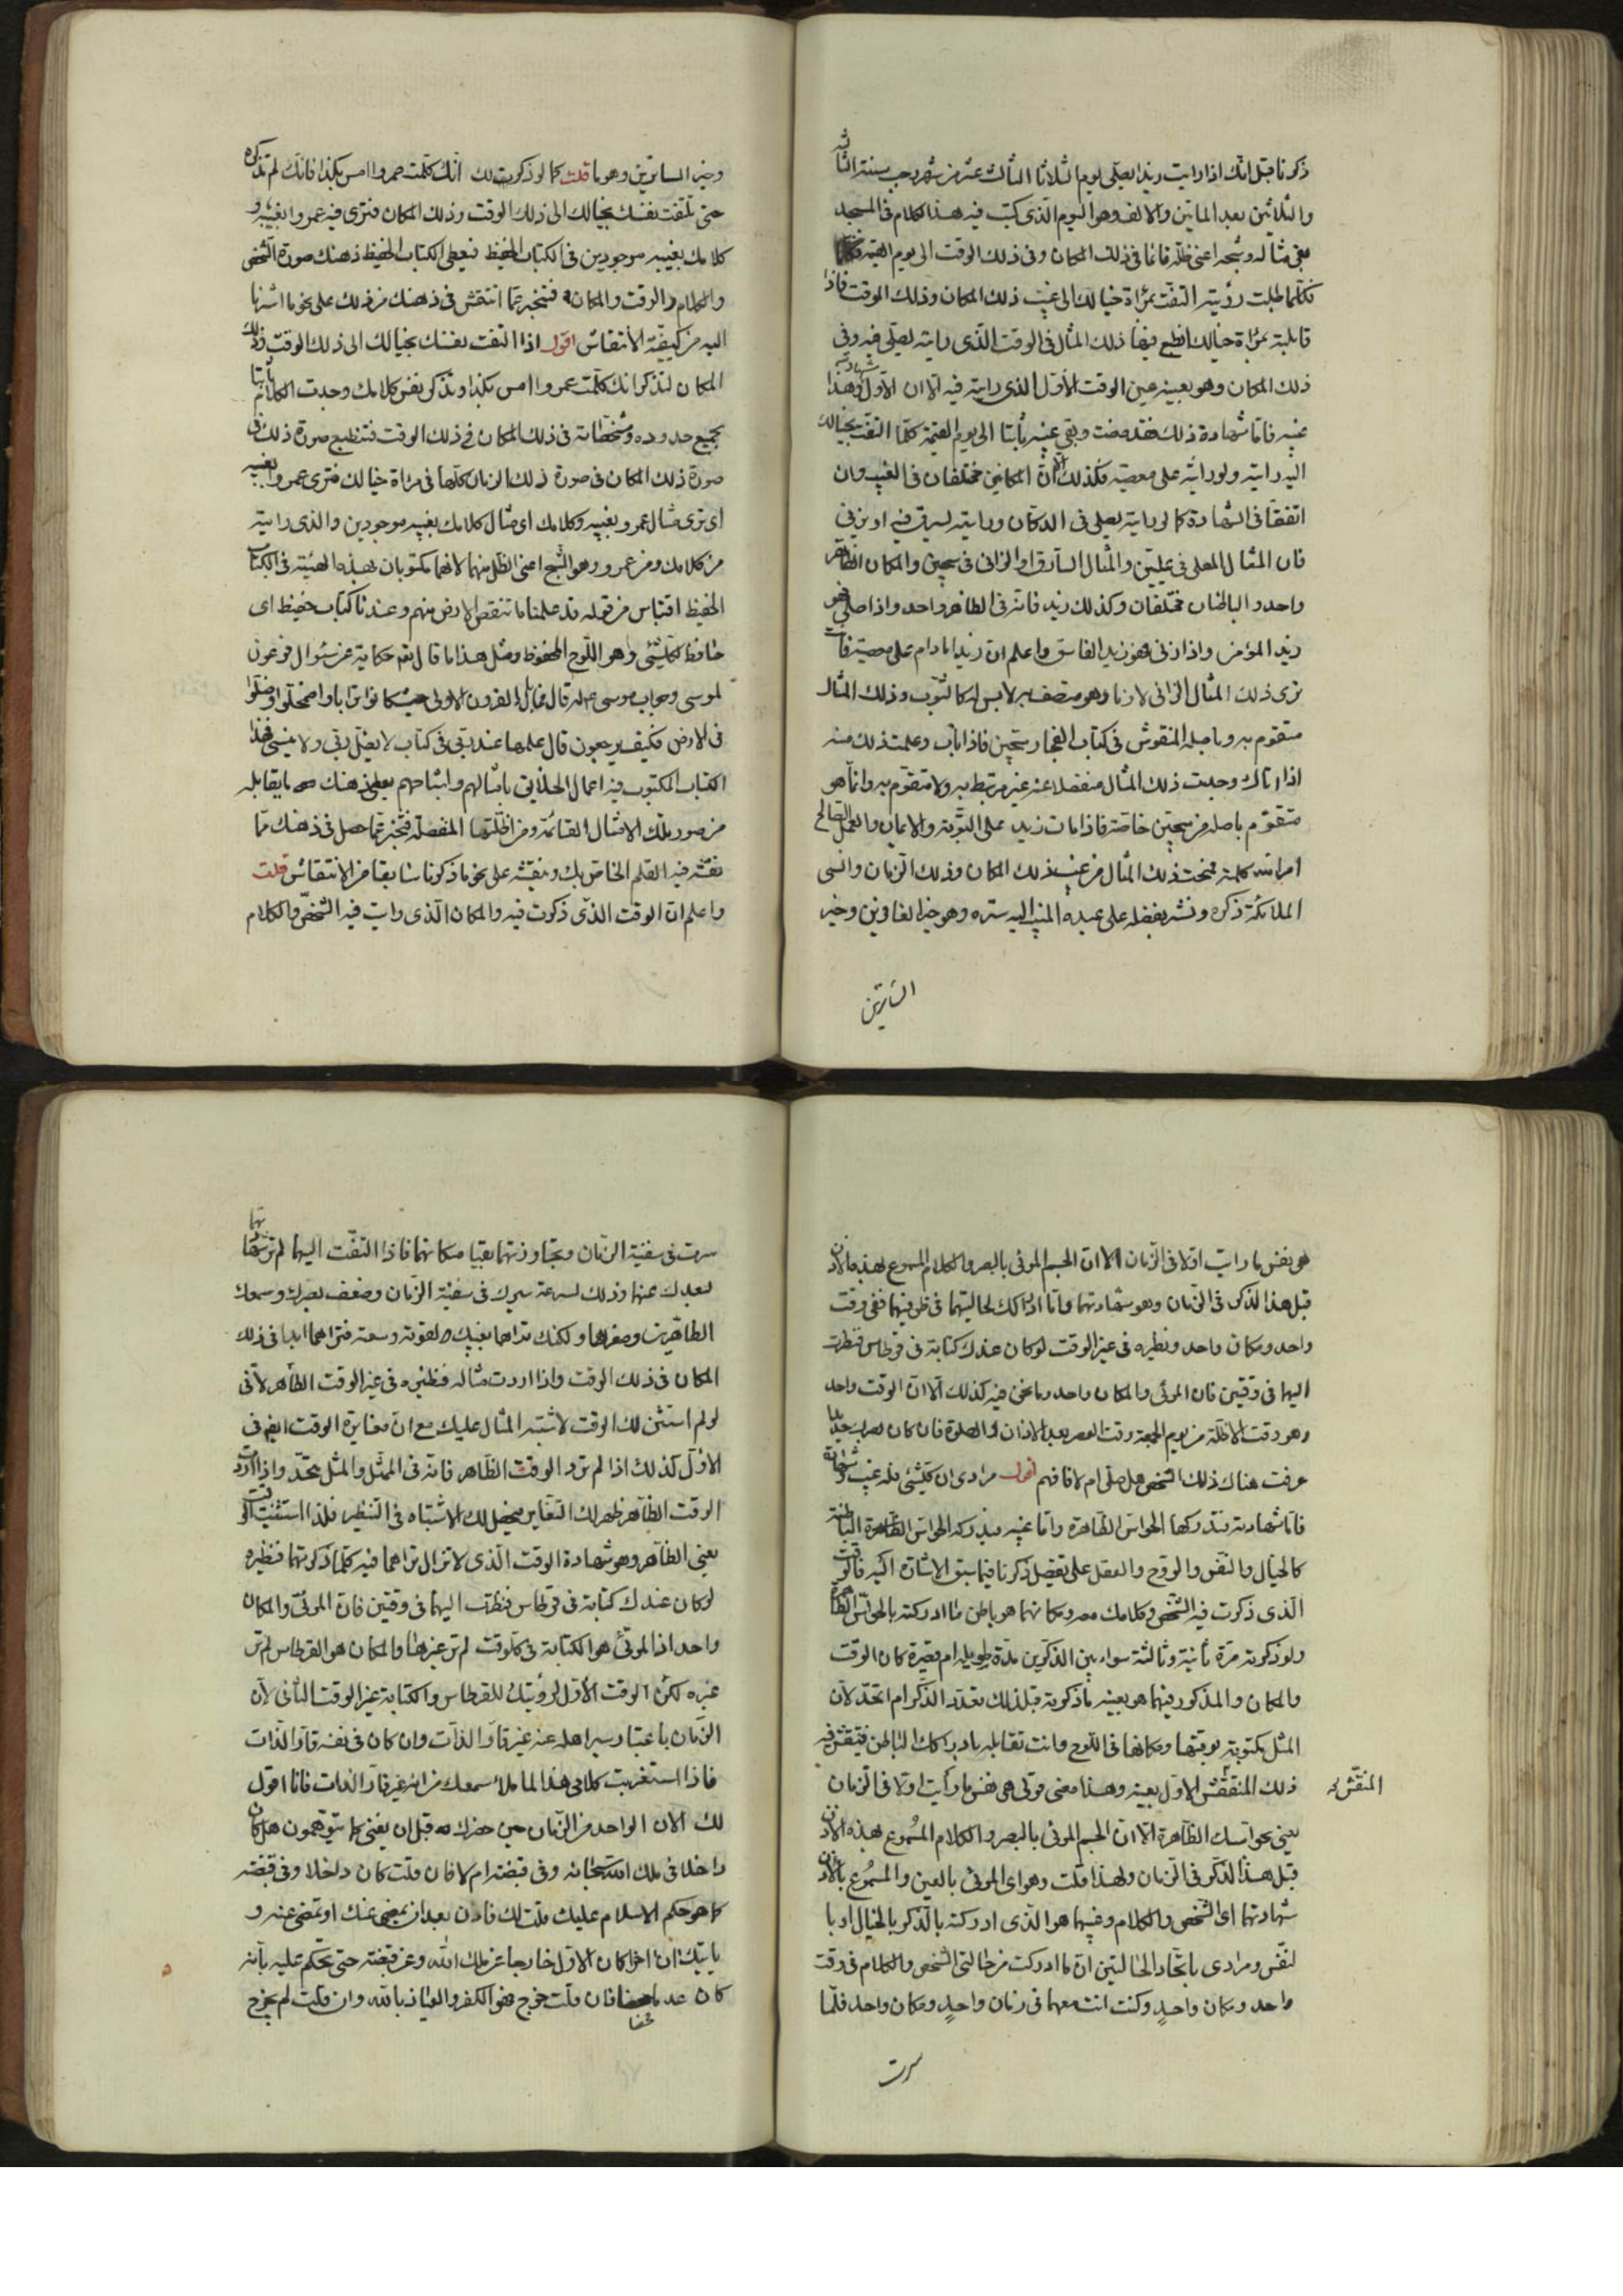 ذكرنا قبل انّك اذا رايت زيدا يصلّى يوم الثلاثا الثالث عشر من شهر رجب سنة الثانية
والثلاثين بعد الماتين والالف وهو اليوم الّذى كتبت فيه هذا الكلام فى المسجد
بقى مثاله وشبحه اعنى ظلّه قائما فى ذلك المكان وفى ذلك الوقت الى يوم القيمة
فكلّما طلبت رؤيته التفتّ بمرآة خيالك الى غيب ذلك المكان وذلك الوقت فاذا
قابلته بمرآة خيالك انطبع فيها ذلك المثال فى الوقت الّذى رايته يصلّى فيه وفى
ذلك المكان وهو بعينه عين الوقت الاوّل الذى رايته فيه الّا ان الاوّل شهادته وهذا
غيبه فامّا شهادة ذلك فقد مضت وبقى غيبه ثابتا الى يوم القيمة كلّما التفتّ بخيالك
اليه رايته ولو رايته على معصية فكذلك الّا انّ المكانين مختلفان فى الغيب وان
اتفقا فى الشهادة كما لو رايته يصلى فى الدكان ورايته يسرق فيه او يزنى
فان المثال المصلى فى علّيّين والمثال السارق او الزانى فى سجين والمكان الظاهر
واحد والباطنان مختلفان وكذلك زيد فانه فى الظاهر واحد واذا صلى فهو
زيد المؤمن واذا زنى فهو زيد الفاسق واعلم ان زيدا ما دام على معصيته فانت
ترى ذلك المثال الزانى لازما وهو متصف به لابس له كالثوب وذلك المثال
متقوّم به وباصله المنقوش فى كتاب الفجار سجّين فاذا تاب وعلمت ذلك منه
اذا اتاك وجدت ذلك المثال منفصلا عنه غير مرتبط به ولا متقوّم به وانّما هو
متقوّم باصله من سجّين خاصّة فاذا مات زيد على التّوبة والايمان والعمل الصالح
امر الله كلمة فمحت ذلك المثال من غيب ذلك المكان وذلك الزمان وانسى
الملائكة ذكره ونشر بفضله على عبده المنيب اليه ستره وهو خير الغافرين وخير
الساترين
وخير الساترين وهو ما قلت كما لو ذكرت لك انّك كلّمت عمروا امس بكذا فانّك لم تذكره
حتى تلتفت نفسك بخيالك الى ذلك الوقت وذلك المكان فترى فيه عمروا بغيبه و
كلامك بغيبه موجودين فى الكتاب الحفيظ فيعطى الكتاب الحفيظ ذهنك صورة الشخص
والكلام والوقت والمكان فتخبر عمّا انتقش فى ذهنك من ذلك على نحو ما اشرنا
اليه من كيفيّة الانتقاش اقول اذا التفت نفسك بخيالك الى ذلك الوقت وذلك
المكان لتذكر انك كلّمت عمروا امس بكذا وتذكر نفس كلامك وجدت الكلام ثابتا
بجميع حدوده ومشخّصاته فى ذلك المكان فى ذلك الوقت فتنطبع صورة ذلك فى
صورة ذلك المكان فى صورة ذلك الزمان كلّها فى مرآة خيالك فترى عمروا بغيبه
اى ترى مثال عمرو بغيبه وكلامك اى مثال كلامك بغيبه موجودين والذى رايته
من كلامك ومن عمرو وهو الشبح اعنى الظل منهما لانهما مكتوبان بهذه الهيئة فى الكتاب
الحفيظ اقتباس من قوله قد علمنا ما تنقص الارض منهم وعندنا كتاب حفيظ اى
حافظ لكلّ شئ وهو اللّوح المحفوظ ومثل هذا ما قال تعم حكاية عن سئوال فرعون
لموسى وجواب موسى له قال فما بال القرون الاولى حيث كانوا ترابا واضمحلّوا وضلّوا
فى الارض فكيف يرجعون قال علمها عند ربّى فى كتاب لا يضلّ ربّى ولا ينسى فهذا
الكتاب المكتوب فيه اعمال الخلائق بامثالهم واشباحهم يعطى ذهنك ما يقابله
من صور تلك الامثال القائمة ومن اظلّتها المنفصلة فتخبر عمّا حصل فى ذهنك ممّا
نقشه فيه القلم الخاصّ بك ونقشه على نحو ما ذكرنا سابقا من الانتقاش قلت
واعلم انّ الوقت الّذى ذكرت فيه والمكان الّذى رايت فيه الشخص والكلام
هى نفس ما رايت اوّلا فى الزّمان الّا انّ الجسم المرئى بالبصر والكلام المسموع بهذه الاذن
قبل هذا الذكر فى الزمان وهو شهادتهما وامّا ادراكك لحالتيهما فى ظرفيهما ففى وقت
واحد ومكان واحد ونظيره فى غير الوقت لو كان عندك كتابة فى قرطاس فنظرت
اليها فى وقتين فان المرئى والمكان واحد وما نحن فيه كذلك الّا انّ الوقت واحد
وهو وقت الاظلّة من يوم الجمعة وقت العصر بعد الاذان والصلوة فان كان بصرك حديدا
عرفت هناك ذلك الشخص هل صلّى ام لا فافهم اقول مرادى ان كلّ شئ فله غيب وشهادة
فامّا شهادته فتدركها الحواس الظاهرة وامّا غيبه فيدركه الحواس الباطنة
كالخيال والنّفس والروح والعقل على تفصيل ذكرنا فيما سبق الاشارة اليه فالوقت
الّذى ذكرت فيه الشّخص وكلامك معه ومكانهما هو باطن ما ادركته بالحواسّ الظاهرة
ولو ذكرته مرّة ثانية وثالثة سواء بين الذكرين مدّة طويلة ام قصيرة كان الوقت
والمكان والمذكور فيهما هو بعينه ما ذكرته قبل ذلك تعدّد الذّكر ام اتّحد لانّ
المثل مكتوبة بوقتها ومكانها فى اللّوح وانت تقابله بادراكك الباطن فينتقش فيه
ذلك المنقش الاوّل بعينه وهذا معنى قولى هى نفس ما رأيت اوّلا فى الزمان
المنقّش
يعنى بحواسك الظّاهرة الّا انّ الجسم المرئى بالبصر والكلام المسموع بهذه الاذن
قبل هذا الذّكر فى الزمان ولهذا قلت وهو اى المرئى بالعين والمسموع بالاذن
شهادتهما اى الشّخص والكلام وغيبهما هو الّذى ادركته بالذّكر بالخيال او با
لنّفس ومرادى باتّحاد الحالتين انّ ما ادركت من حالتى الشخص والكلام فى وقت
واحد ومكان واحدٍ وكنت انت معهما فى زمان واحدٍ ومكان واحد فلمّا
سرت
سرت فى سفينة الزّمان وتجاوزتهما بقيا مكانهما فاذا التفتّ اليهما لم ترهما
لبعدك عنهما وذلك لسرعة سيرك فى سفينة الزّمان وضعف بصرك وسمعك
الظاهرين وصغرهما ولكنك تراهما بغيبك لقوته وسعته فتراهما ابدا فى ذلك
المكان فى ذلك الوقت واذا اردت مثاله فنظيره فى غير الوقت الظّاهر لأنّى
لو لم استثن لك الوقت لاشتبه المثال عليك مع انّ مغايرة الوقت ايضا فى
الاوّل كذلك اذا لم ترد الوقت الظّاهر فانّه فى الممثّل والمثل متّحد واذا اردت
الوقت الظاهر ظهر لك التغاير فيحصل لك الاشتباه فى التنظير فلذا استثنيت الوقت
يعنى الظاهر وهو شهادة الوقت الّذى لا تزال تراهما فيه كلّما ذكرتهما فنظيره
لو كان عندك كتابة فى قرطاس فنظرت اليها فى وقتين فانّ المرئىّ والمكان
واحد اذ المرئىّ هو الكتابة فى كلّ وقت لم تر غيرها والمكان هو القرطاس لم تر
غيره لكنّ الوقت الأوّل لرؤيتك للقرطاس والكتابة غير الوقت الثّانى لانّ
الزمان باعتبار سير اهله عنه غير قارّ الذات وان كان فى نفسه قارّ الذّات
فاذا استغربت كلامى هذا لما ملأ سمعك من انّه غير قارّ الذات فانا اقول
لك الان الواحد من الزّمان حين حضرك قبل ان يفنى كما يتوهّمون هل كان
داخلا فى ملك الله سبحانه وفى قبضته ام لا فان قلت كان داخلا وفى قبضته
كما هو حكم الاسلام عليك قلت لك فاذن بعد ان يمضى عنك او تمضى عنه و
ياتيك ان اخر اكان الاوّل خارجا عن ملك الله وعن قبضته حتى تحكم عليه بأنّه
كان عدما محضا فان قلت خرج فهو الكفر والعياذ بالله وان قلت لم يخرج